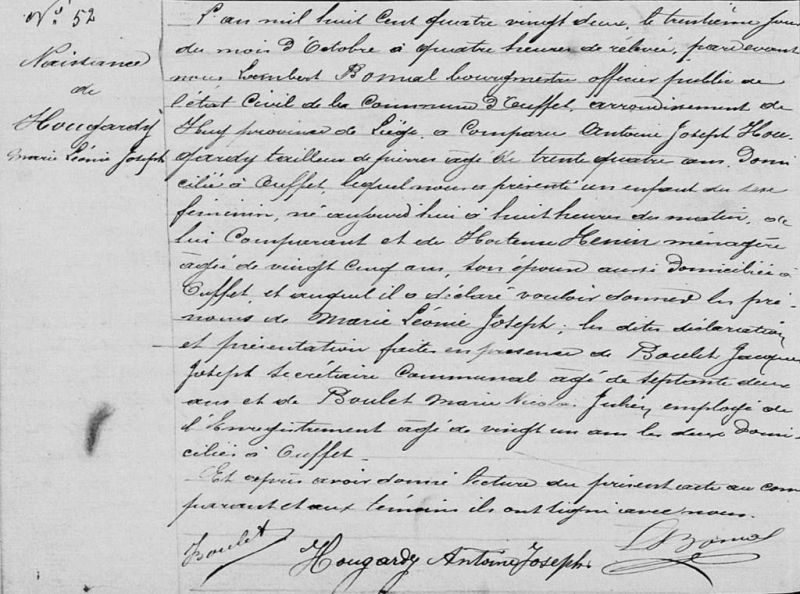 N° 52
Naissance
de
Hougardy
Marie Léonie Joseph
L'an mil huit cent quatre vingt deux, le trentième jour
du mois d'Octobre à quatre heures de relevée, pardevant
nous Lambert Bonual bourgmestre officier public de
l'état Civil de la Commune d'Ouffet, arrondissement de
Huy province de Liège, a Comparu Antoine Joseph Hou-
gardy tailleur de pierres âgé de trente quatre ans, domi
cilié à Ouffet, lequel nous a présenté un enfant du sexe
féminin, né aujourd'hui à huit heures du matin, de
lui Comparant et de Hortense Henin ménagère
âgée de vingt cinq ans, son épouse aussi domiciliée à
Ouffet, et auquel il a déclaré vouloir donner les pré-
noms de Marie Léonie Joseph; les dites déclaration
et présentation faites en présence de Boulet Jacques
Joseph Secrétaire Communal âgé de septante deux
ans et de Boulet Marie Nicolas Julien employé de
l'Enregistrement âgé de vingt un ans les deux domi
ciliés à Ouffet.
Et après avoir donné lecture du présent acte au com
parant et aux témoins ils ont signé avec nous.
Boulet
Hougardy Antoine Joseph